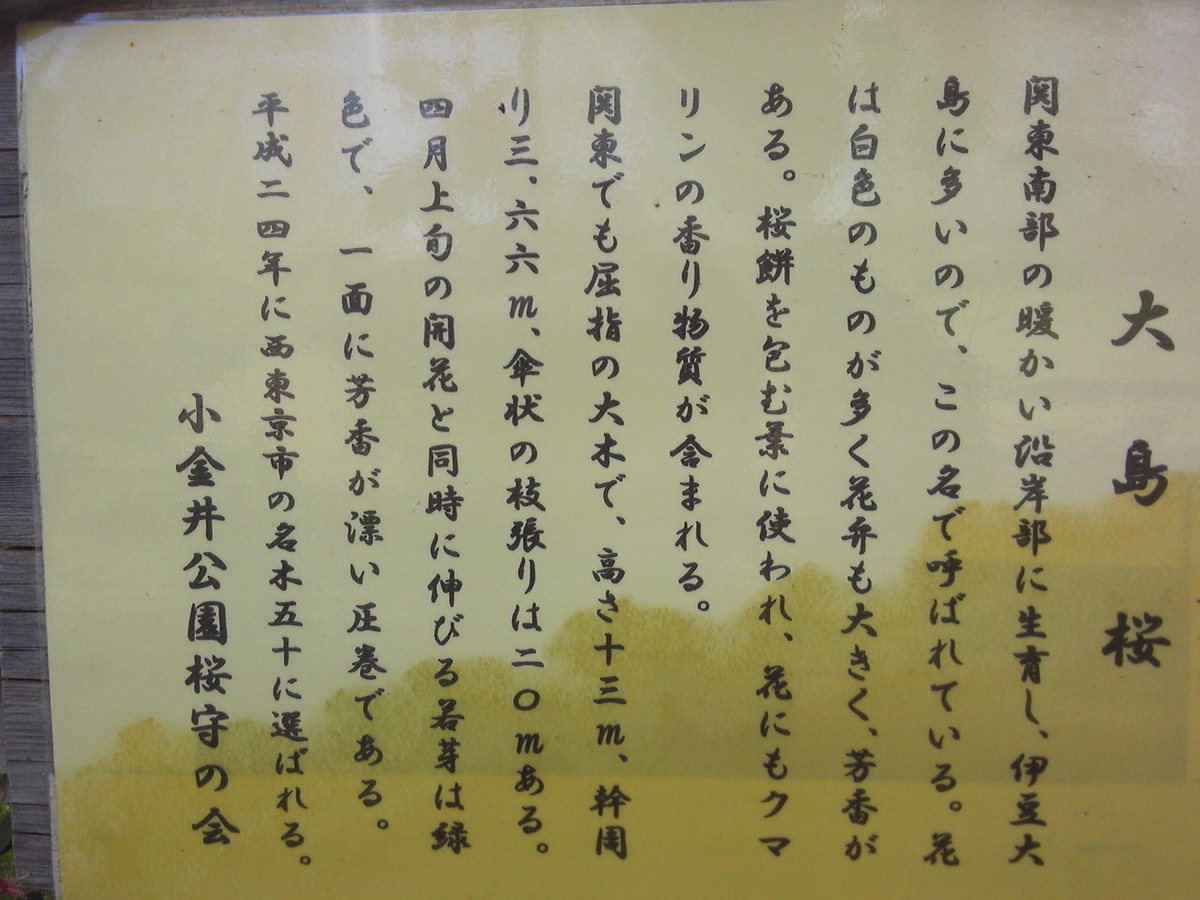 大島桜
関東南部の暖かい沿岸部に生育し、伊豆大
島に多いので、この名で呼ばれている。花
は白色のものが多く花弁も大きく、芳香が
ある。桜餅を包む葉に使われ、花にもクマ
リンの香り物質が含まれる。
関東でも屈指の大木で、高さ十三m、幹周
り三、六六m、傘状の枝張りは二〇mある。
四月上旬の開花と同時に伸びる若芽は緑
色で、一面に芳香が漂い圧巻である。
平成二四年に西東京市の名木五十に選ばれる。
小金井公園桜守の会